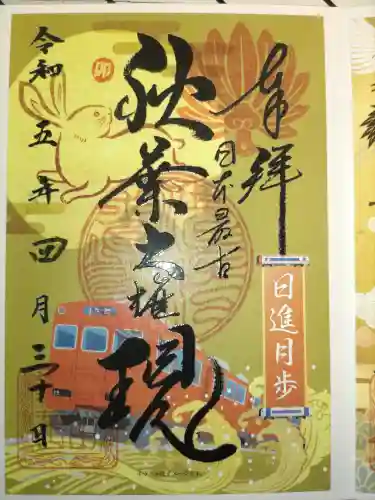 奉拝
日本最古
秋葉大権現
令和五年四月三十日
日進月歩
卯